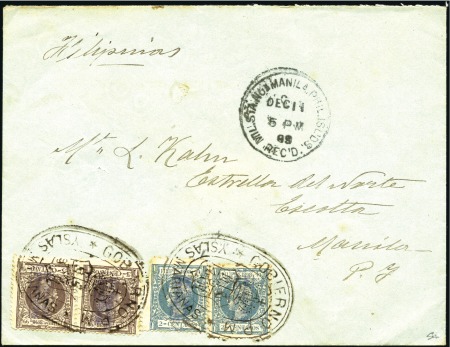 Filipinas
MIL. STA. NO. 1 MANILA, PHIL. ISLDS.
DEC 11
5 PM
98
REC'D.
Mr. L. Kahn
Estrella del Norte
Escolta
Manila
P. I
GOBIERNO P. M.
YSLAS MARIANAS
GOBIERNO P. M.
YSLAS MARIANAS